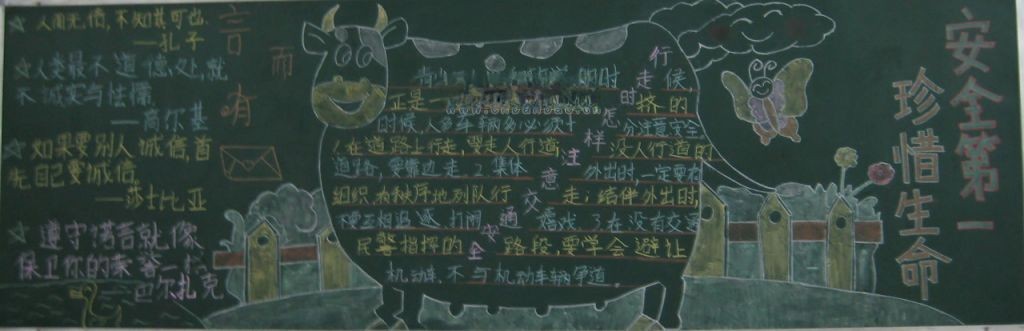 安全第一
珍惜生命
言而
人而无信,不知其可也
——孔子
☆人类最不道德处,就
不诚实与怯懦
——高尔基
☆如果要别人诚信,首
先自己要诚信
——莎士比亚
☆遵守诺言就像
保卫你的荣誉一样
巴尔扎克
行走时怎样注意交通安全
时候,人多车辆多必须十分注意安全
在道路上行走,要走人行道,没人行道的
道路,要靠边走。2.集体外出时,一定要有
组织、有秩序地列队行走;结伴外出时,
不要互相追逐、打闹、嬉戏 3.在没有交通
民警指挥的路段,要学会避让
机动车,不与机动车辆争道。